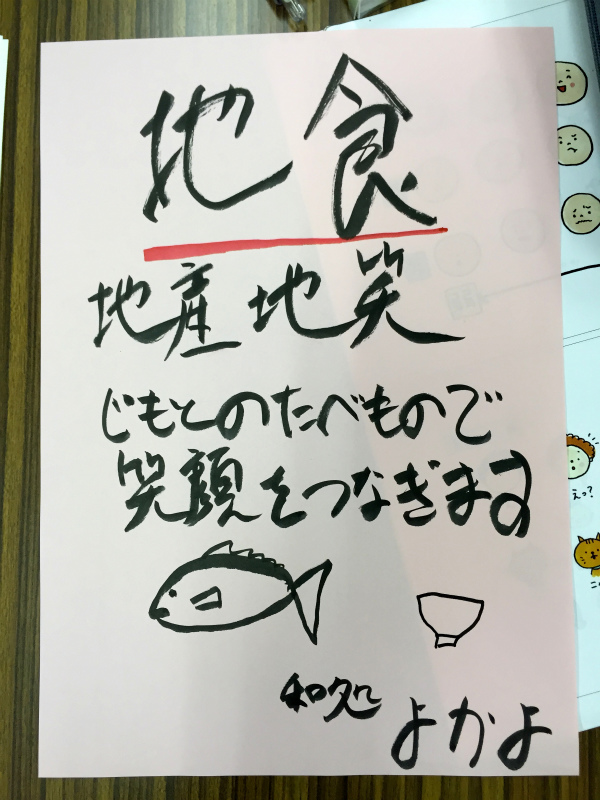 地食
地産地笑
じもとのたべもので
笑顔をつなぎます
和処
よかよ
えっ?